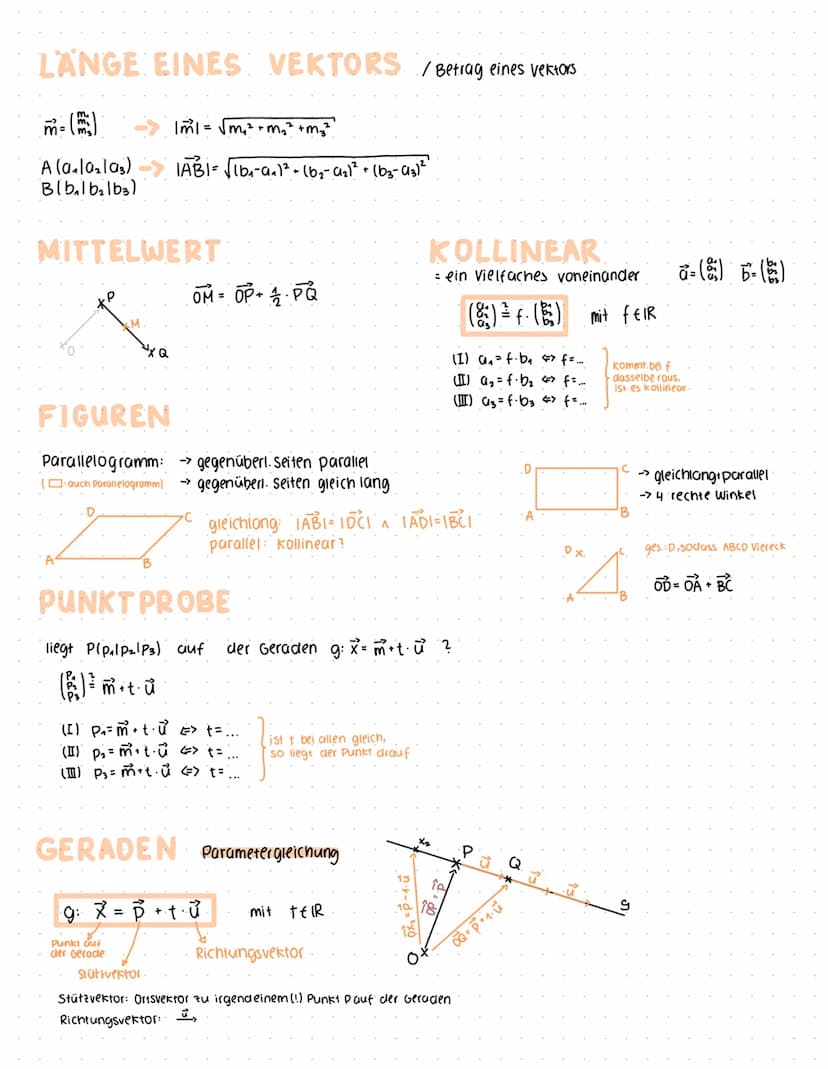 LÄNGE EINES VEKTORS / Betrag eines Vektors
m⃗ = (m₁ m₂ m₃) → |m⃗| = √(m₁² + m₂² + m₃²)
A(a₁|a₂|a₃) → |AB⃗| = √((b₁-a₁)² + (b₂-a₂)² + (b₃-a₃)²)
B(b₁|b₂|b₃)
MITTELWERT
OM⃗ = OP⃗ + 1/2 · PQ⃗
P
M
O
Q
KOLLINEAR
= ein Vielfaches voneinander a⃗ = (a₁ a₂ a₃) b⃗ = (b₁ b₂ b₃)
(a₁ a₂ a₃) ≟ f · (b₁ b₂ b₃) mit f ∈ ℝ
(I) a₁ = f · b₁ ⇔ f = ...
(II) a₂ = f · b₂ ⇔ f = ...
(III) a₃ = f · b₃ ⇔ f = ...
kommt bei f
dasselbe raus,
ist es kollinear
FIGUREN
Parallelogramm: → gegenüberl. Seiten parallel
(▭ auch Parallelogramm) → gegenüberl. Seiten gleich lang
D
C
A
B
gleichlang: |AB⃗| = |DC⃗| ∧ |AD⃗| = |BC⃗|
parallel: kollinear?
D
C
A
B
→ gleichlang+parallel
→ 4 rechte Winkel
D x
C
A
B
ges.: D, sodass ABCD Viereck
OD⃗ = OA⃗ + BC⃗
PUNKTPROBE
liegt P(p₁|p₂|p₃) auf der Geraden g: x⃗ = m⃗ + t · u⃗ ?
(p₁ p₂ p₃) ≟ m⃗ + t · u⃗
(I) p₁ = m⃗ + t · u⃗ ⇔ t = ...
(II) p₂ = m⃗ + t · u⃗ ⇔ t = ...
(III) p₃ = m⃗ + t · u⃗ ⇔ t = ...
ist t bei allen gleich,
so liegt der Punkt drauf
GERADEN Parametergleichung
g: x⃗ = p⃗ + t · u⃗ mit t ∈ ℝ
Punkt auf
der Gerade
Stützvektor
Richtungsvektor
P
u⃗
Q
u⃗
u⃗
g
OP⃗ = p⃗
OQ⃗ = p⃗ + 1 · u⃗
O
Stützvektor: Ortsvektor zu irgendeinem(!) Punkt P auf der Geraden
Richtungsvektor: u⃗